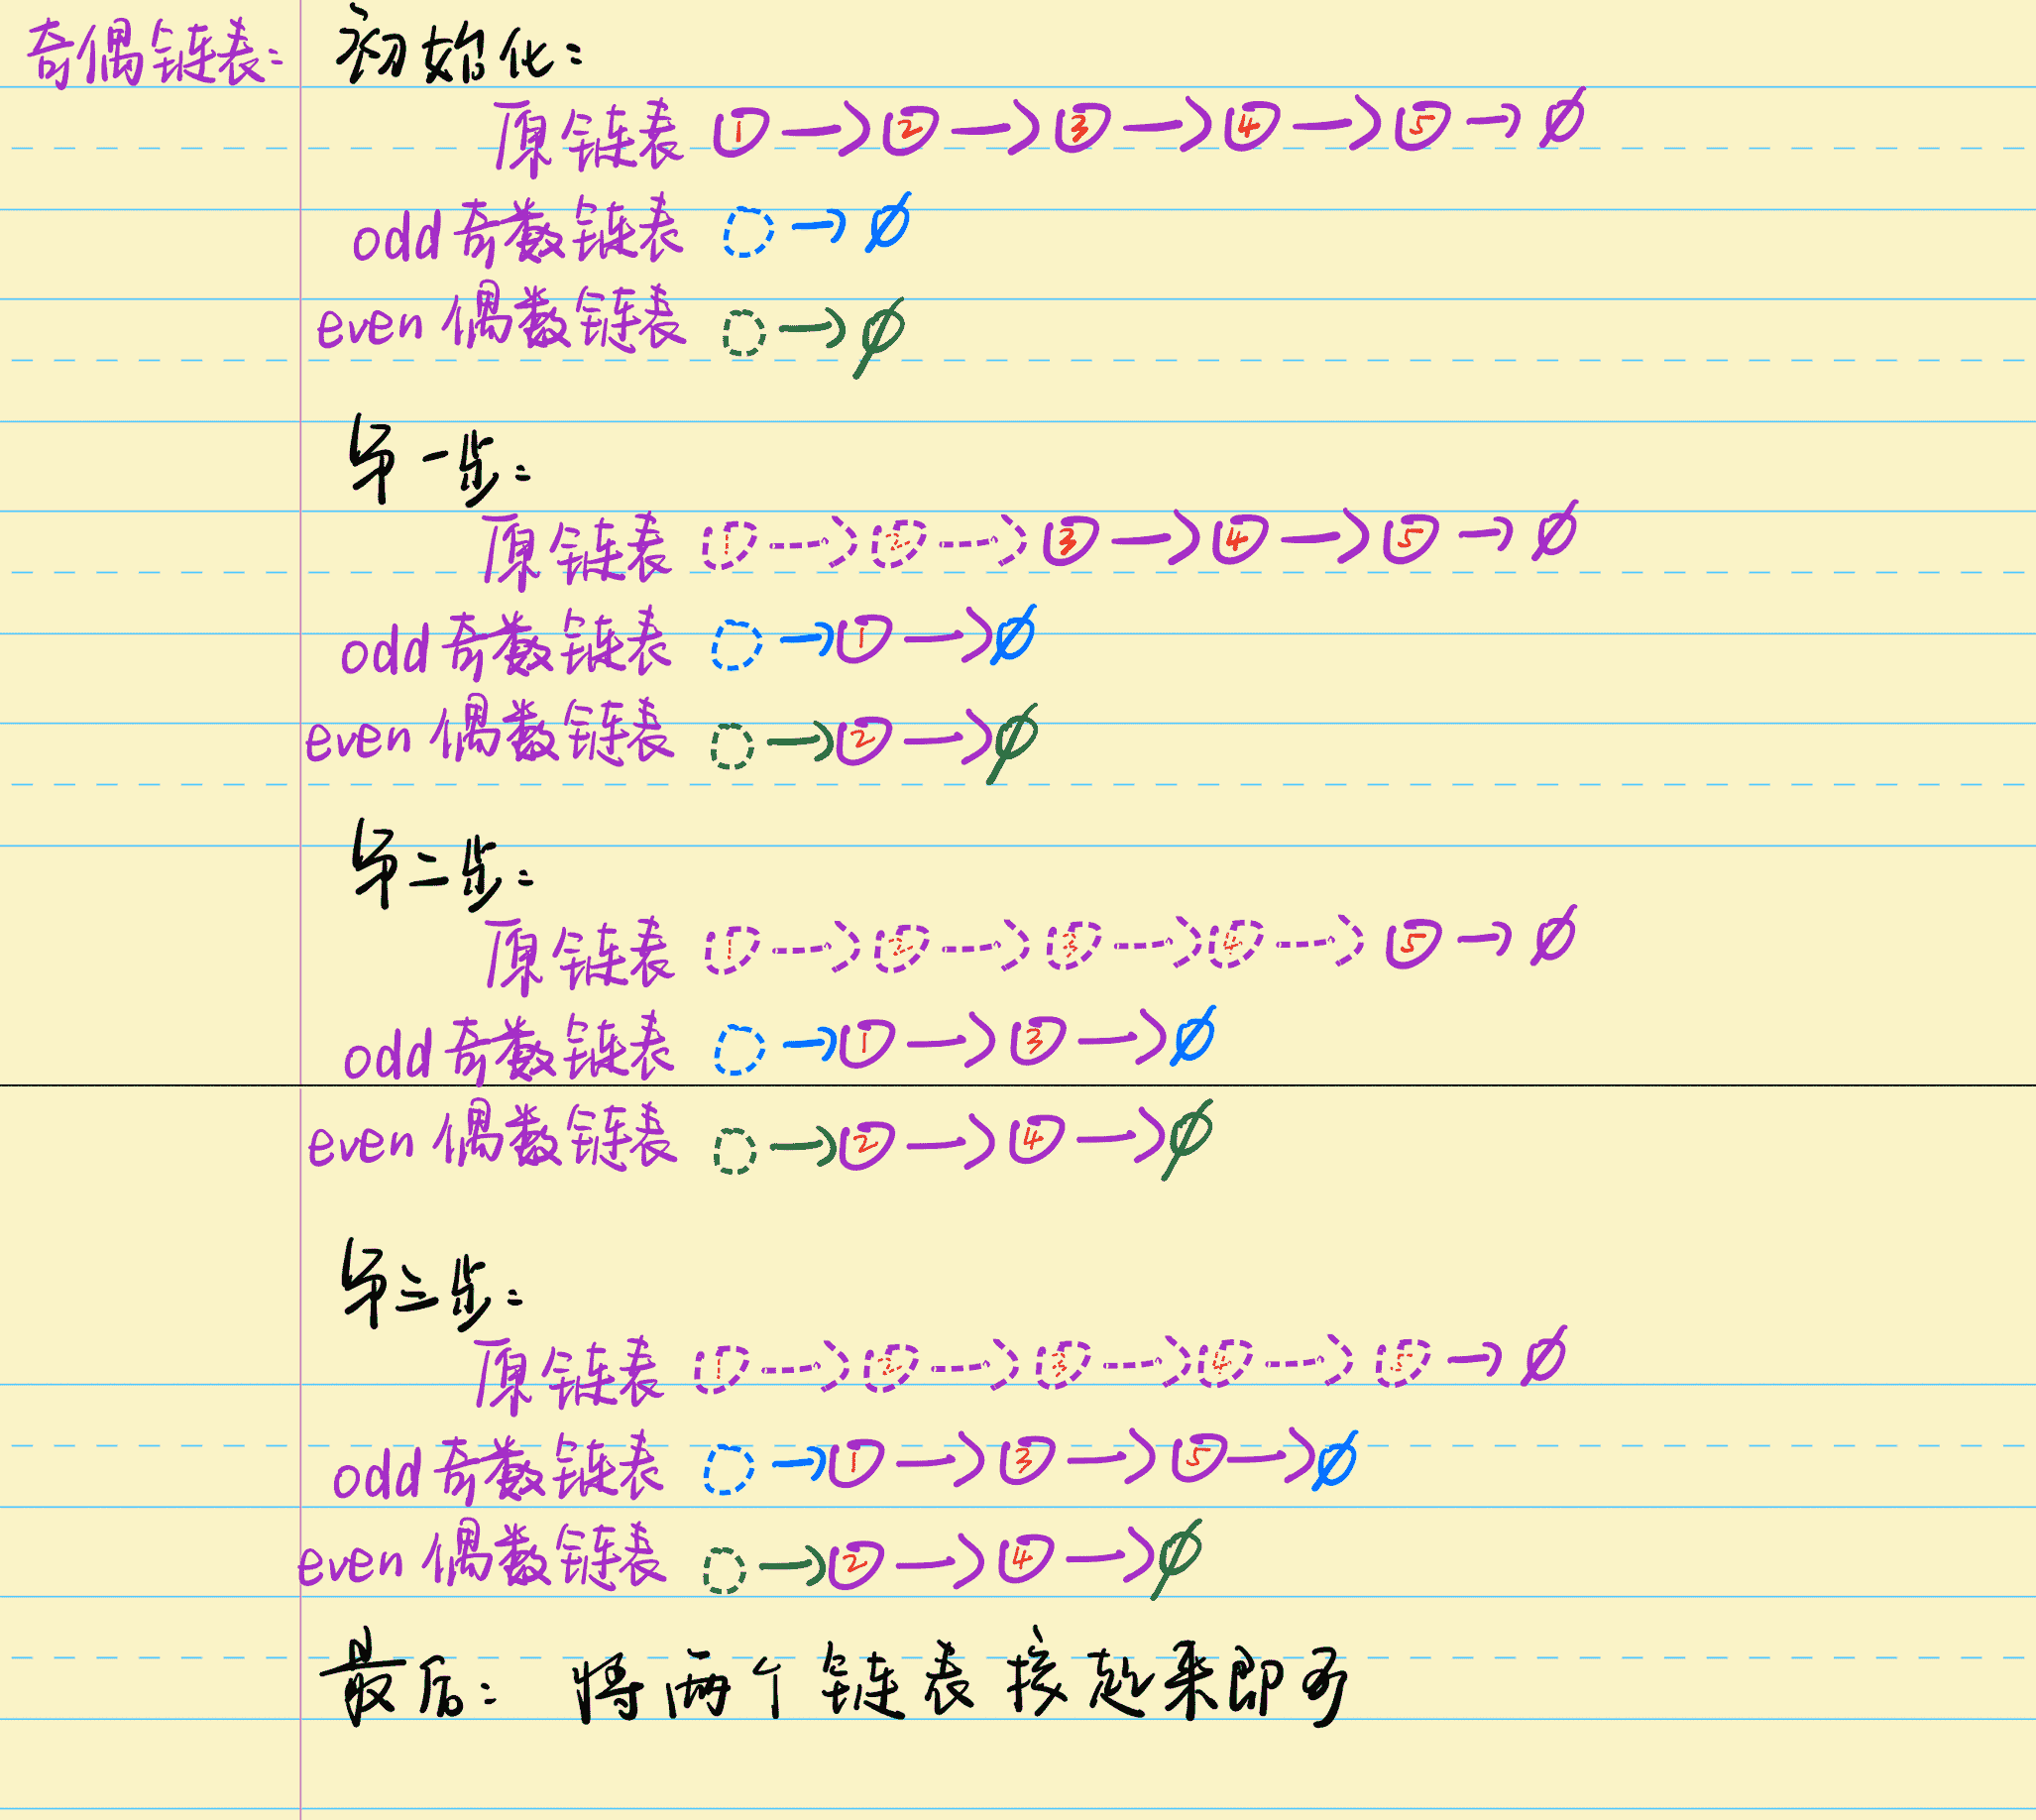 奇偶链表: 初始化:
原链表 ① → ② → ③ → ④ → ⑤ → ∅
odd 奇数链表 ◌ → ∅
even 偶数链表 ◌ → ∅
第一步:
原链表 1 → 2 → ③ → ④ → ⑤ → ∅
odd 奇数链表 ◌ → ① → ∅
even 偶数链表 ◌ → ② → ∅
第二步:
原链表 1 → 2 → 3 → 4 → ⑤ → ∅
odd 奇数链表 ◌ → ① → ③ → ∅
even 偶数链表 ◌ → ② → ④ → ∅
第三步:
原链表 1 → 2 → 3 → 4 → 5 → ∅
odd 奇数链表 ◌ → ① → ③ → ⑤ → ∅
even 偶数链表 ◌ → ② → ④ → ∅
最后: 将两个链表接起来即可